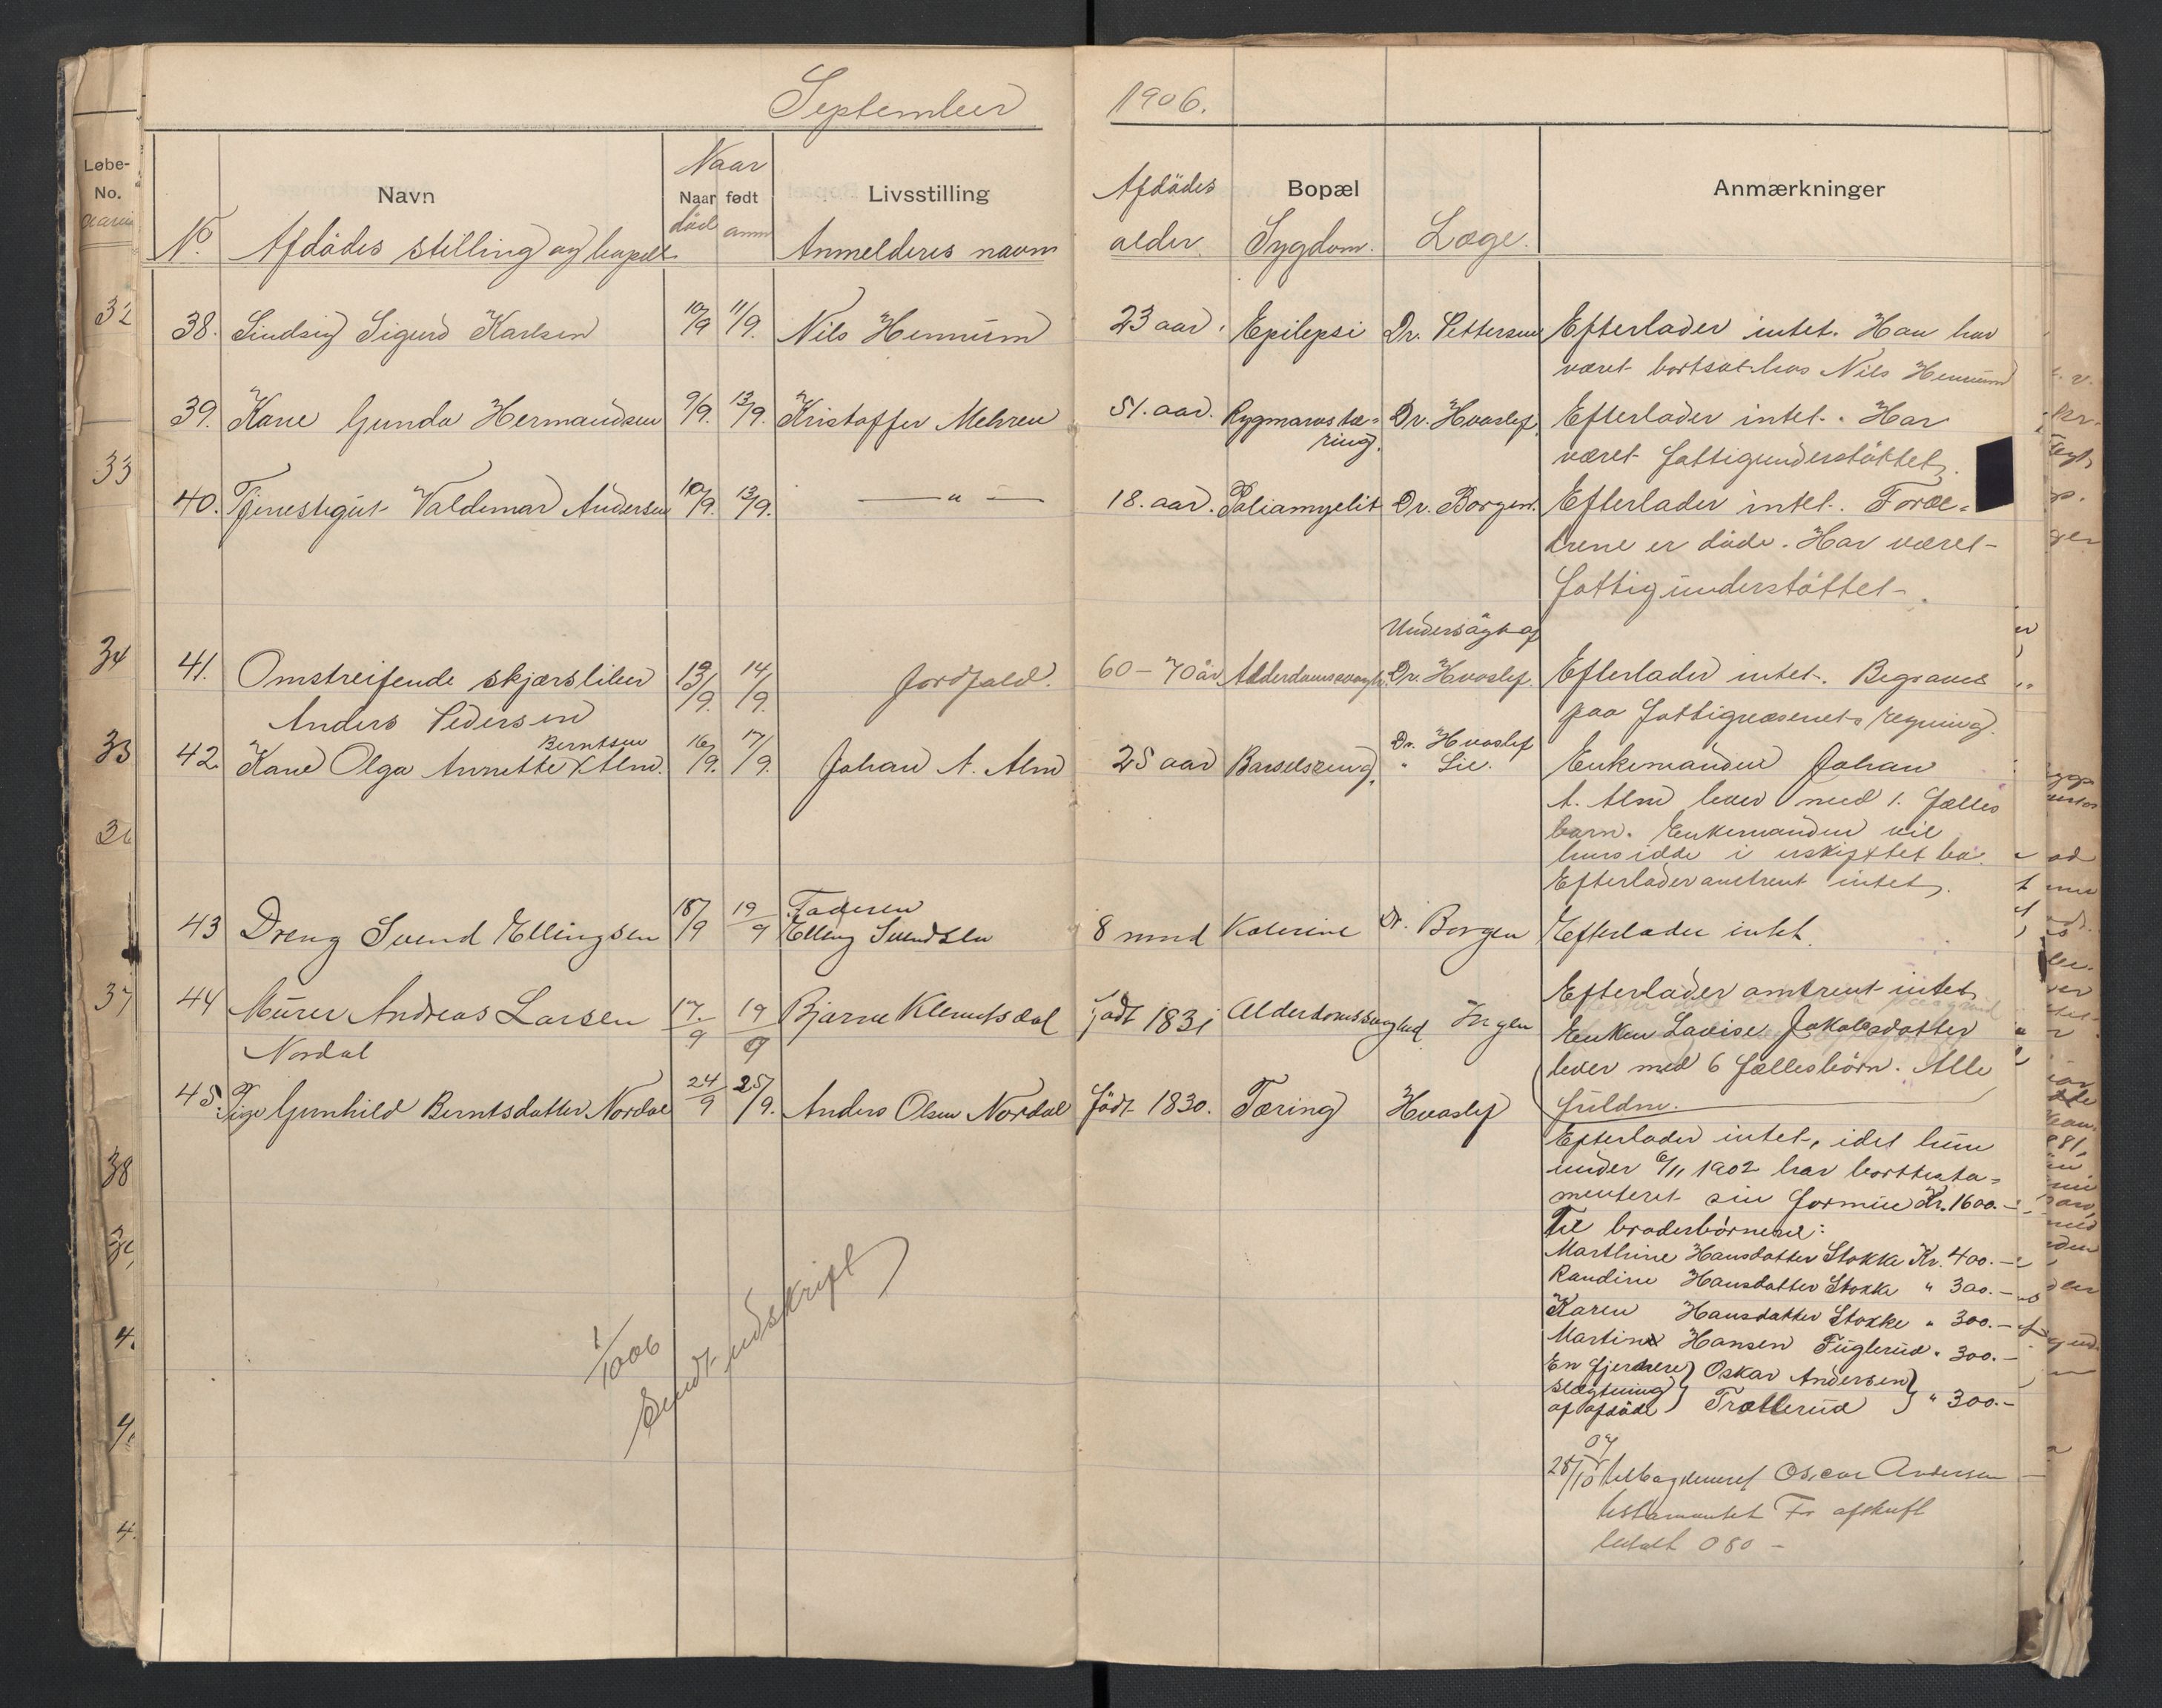 September 1906.
Løbe-
No.
Navn
Naar
Naar født
Livsstilling
Afdødes
Bopæl
Anmærkninger
No. Afdødes stilling og bopæl
død anm
Anmelderes navn
alder. Sygdom. Læge.
32
38. Sindsig Sigurd Karlsen 10/9 11/9. Nils Hennum 23 aar. Epilepsi Dr. Pettersen Efterlader intet. Han har
været bortsat hos Nils Hennum
39. Kone Gunda Hermandsen 9/9. 13/9. Kristoffer Mehren 51. aar. Rygmarvstæ- Dr. Hvoslef. Efterlader intet. Har
ring. været fattigunderstøttet.
33
40. Tjenestegut Valdemar Andersen 10/9. 13/9. — " — 18. aar. Poliomyelit Dr. Borgen. Efterlader intet. Foræl-
drene er døde. Har været
fattigunderstøttet.
Undersøgt af
34
41. Omstreifende skjærsliber 13/9. 14/9. Jordfald. 60-70 år Alderdomssvagh. Dr. Hvoslef. Efterlader intet. Begraves
Anders Pedersen paa fattigvæsenets regning.
35
Berntsen Dr. Hvoslef
42. Kone Olga Annette Alm. 16/9. 17/9. Johan A. Alm 25 aar Barselseng. " Lie. Enkemanden Johan
A. Alm lever med 1. fælles
barn. Enkemanden vil
36
hensidde i uskiftet bo.
Efterlader omtrent intet.
Faderen
43 Dreng Svend Ellingsen 18/9 19/9 Elling Svendsen 8 mnd Dr. Borgen Efterlader intet.
37
44 Murer Andreas Larsen 17/9 19/9 Bjarne Klemetsdal født 1831 Alderdomssvaghed Ingen Efterlader omtrent intet
Nordal Enken Lovise Jakobsdatter
lever med 6 fællesbørn. Alle
fuldm.
45. Pige Gunhild Berntsdatter Nordal 24/9 25/9. Anders Olsen Nordal født 1830. Tæring Hvoslef
38
Efterlader intet, idet hun
under 6/11 1902 har borttesta-
menteret sin formue Kr. 1600.-
Til broderbørnene:
Marthine Hansdatter Stokke Kr. 400.-
Randine Hansdatter Stokke " 300.-
Karen Hansdatter Stokke " 300.-
Martin Hansen Fuglerud " 300.-
En fjernere slægtning af afdøde } Oskar Andersen Trollerud } " 300.-
1/10 06
Sendt udskrift
07
28/10 tilbageleveret Oscar Andersen
testamentet For afskrift
betalt 0 80 -